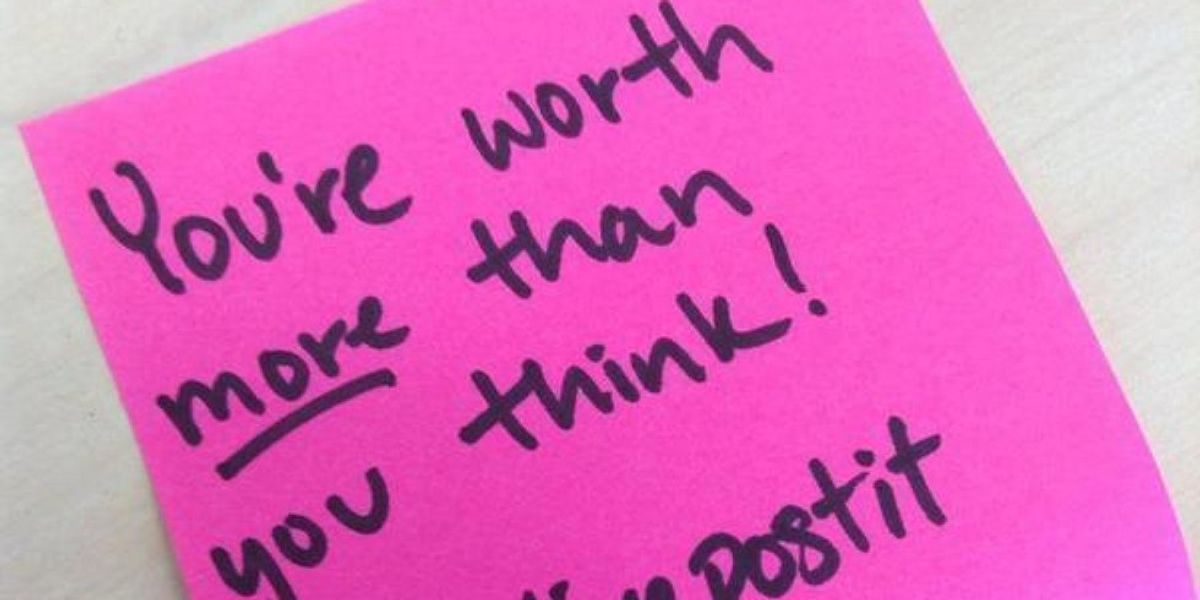 You're worth
more than
you think!
postit